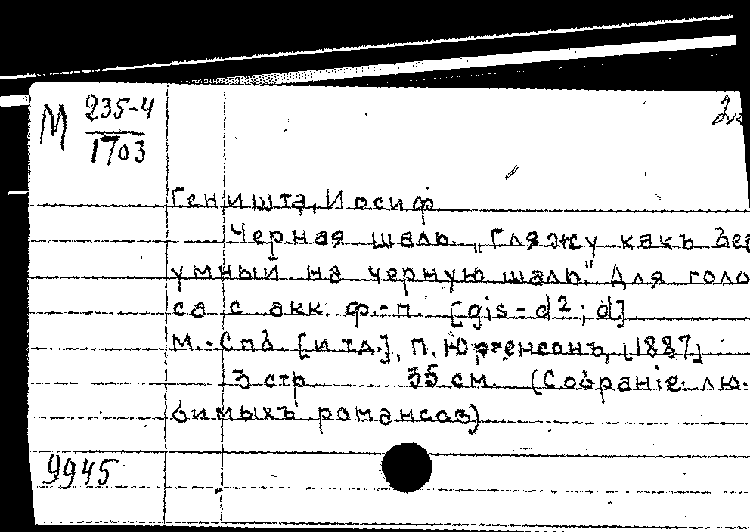 М 235-4
1703
Геништа, Иосиф
Черная шаль. „Гляжу какъ без
умный на черную шаль." Для голо
са с акк. ф.-п. [gis - d²; d]
М.-Спб. [и т.д.], П. Юргенсонъ, [1887]
3 стр. 35 см. (Собранiе лю-
бимыхъ романсов)
9945